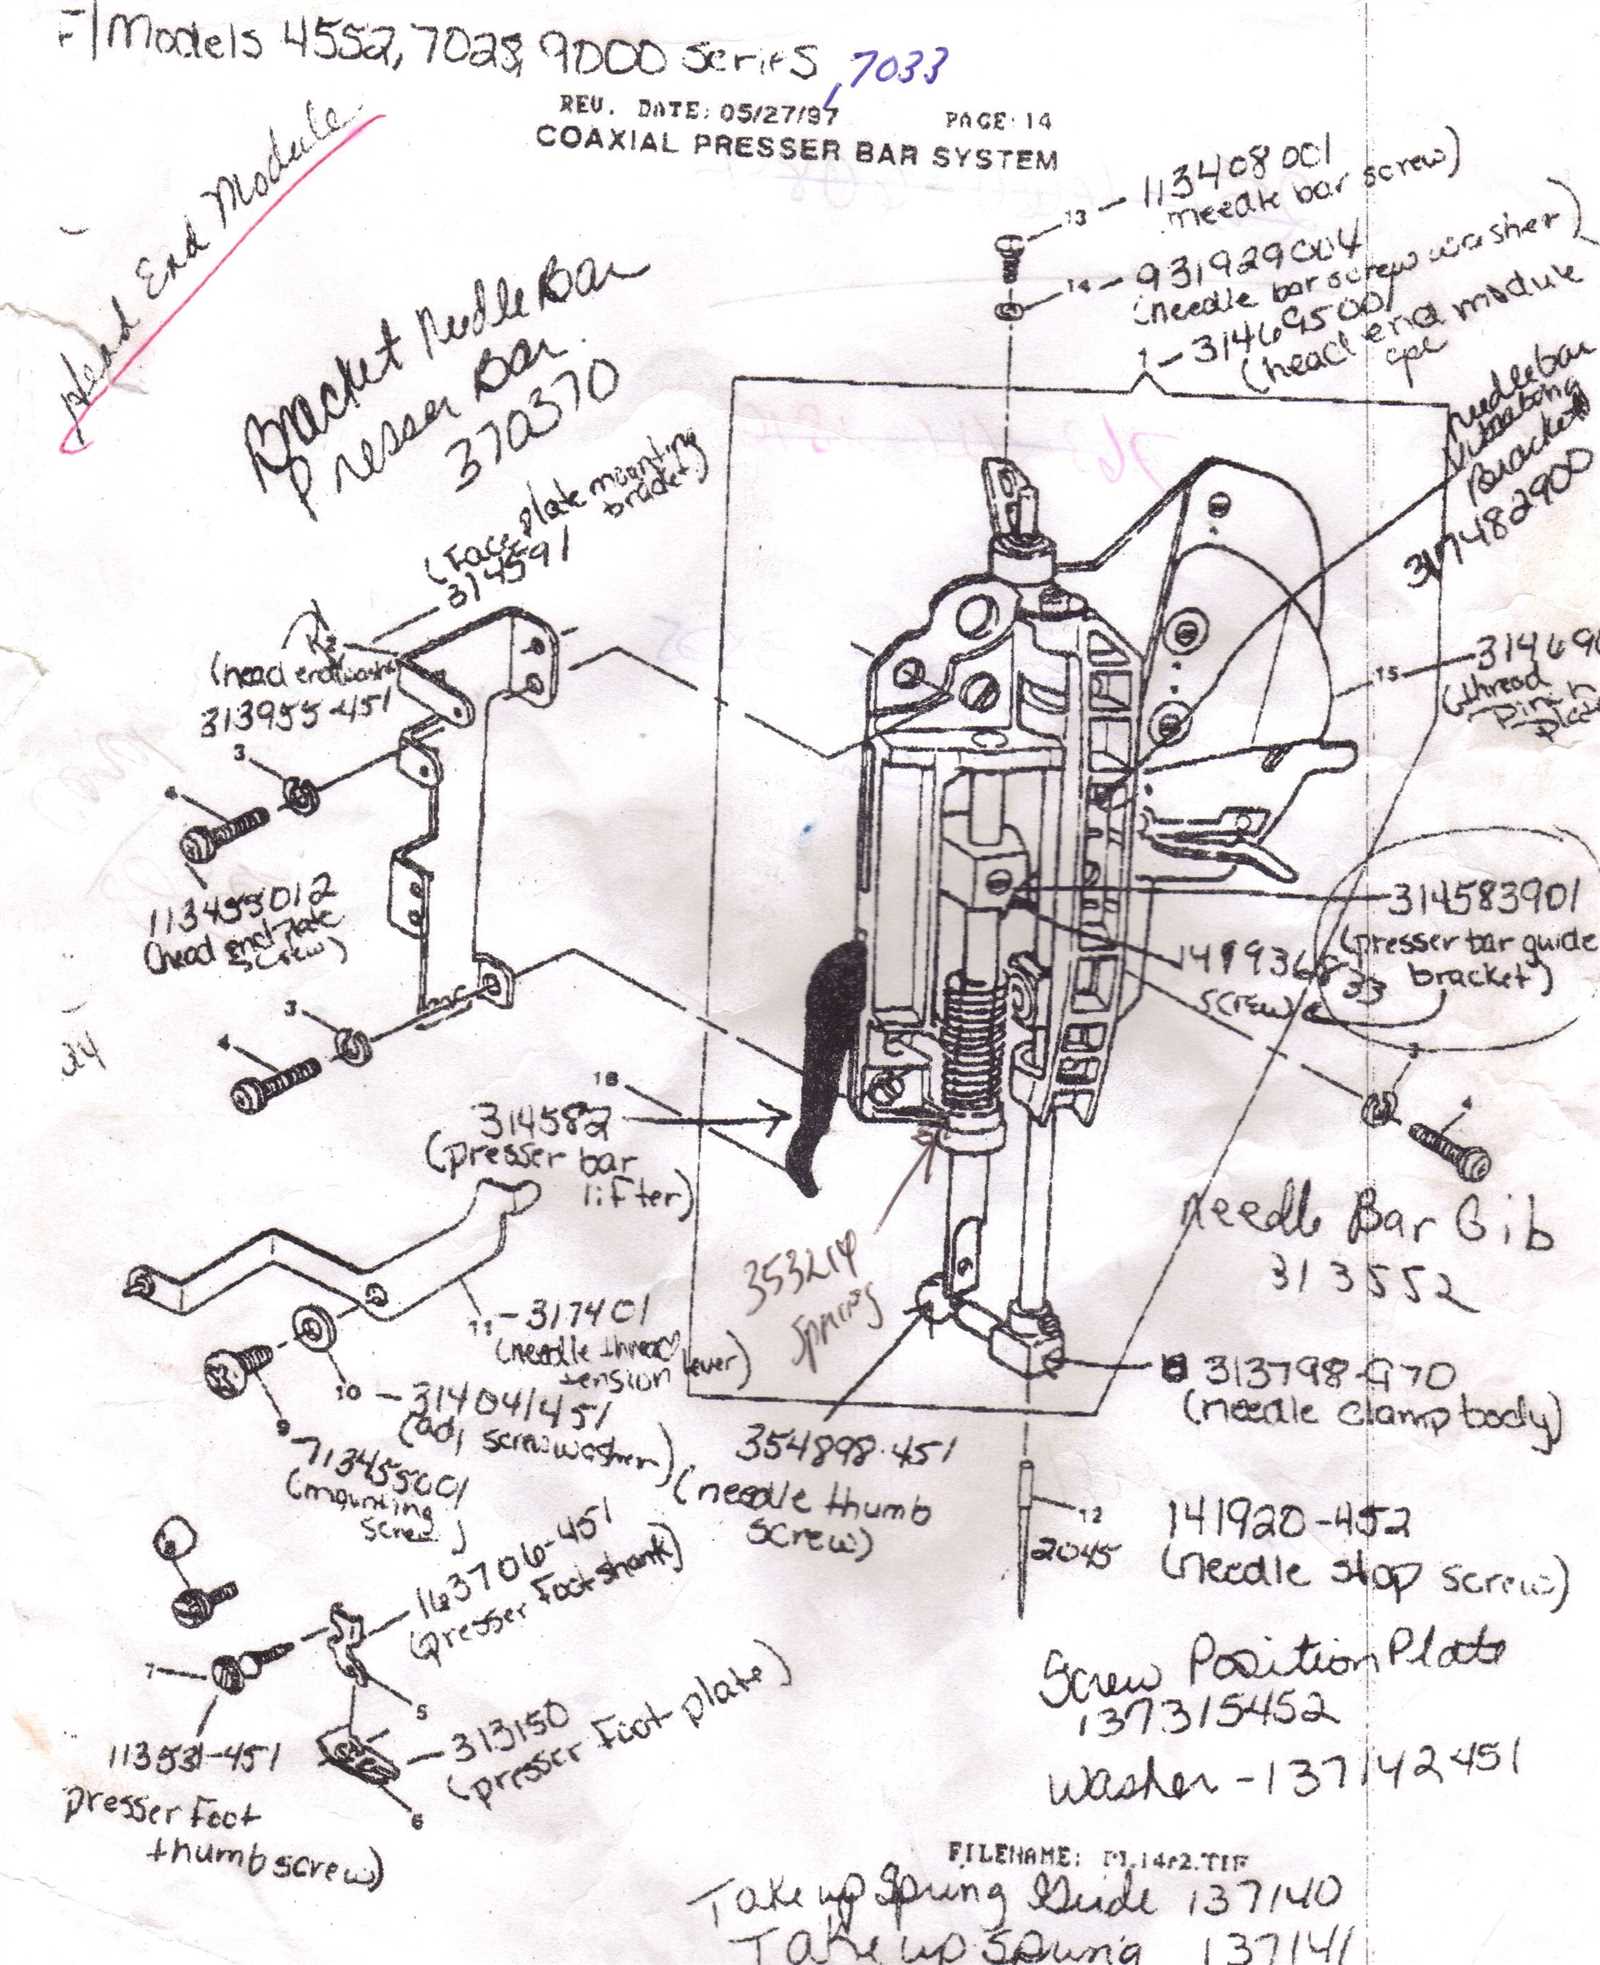 F/Models 4552, 7028, 9000 series, 7033
REV. DATE: 05/27/97 PAGE 14
COAXIAL PRESSER BAR SYSTEM
Head End Module
Bracket Needle Bar
Presser Bar
370370
13 - 113408001
needle bar screw)
14 - 931929004
(needle bar screw washer)
1 - 314695001
(head end module
cpl
needle bar
Bracket
15
(thread
(Face plate mounting
bracket)
314591
(head end washer
313955-451
3
4
113455012
(head end plate
screw)
3
4
24
314583901
(presser bar guide
bracket)
screw)
33
3
4
18
314582
(presser bar
lifter)
353214
spring
Needle Bar Gib
313552
11 - 317401
(needle thread
tension lever)
10 - 314041451
(adj screw washer)
9
713455001
(mounting
screw)
313798-G70
(needle clamp body)
354898-451
(needle thumb
screw)
12
2045
141920-452
(needle stop screw)
163706-451
(presser foot shank)
7
5
113531-451
presser foot
thumb screw)
313150
(presser foot plate)
6
Screw Position Plate
137315452
Washer - 137142451
FILENAME:
Take up Spring Guide 137140
Take up Spring 137141